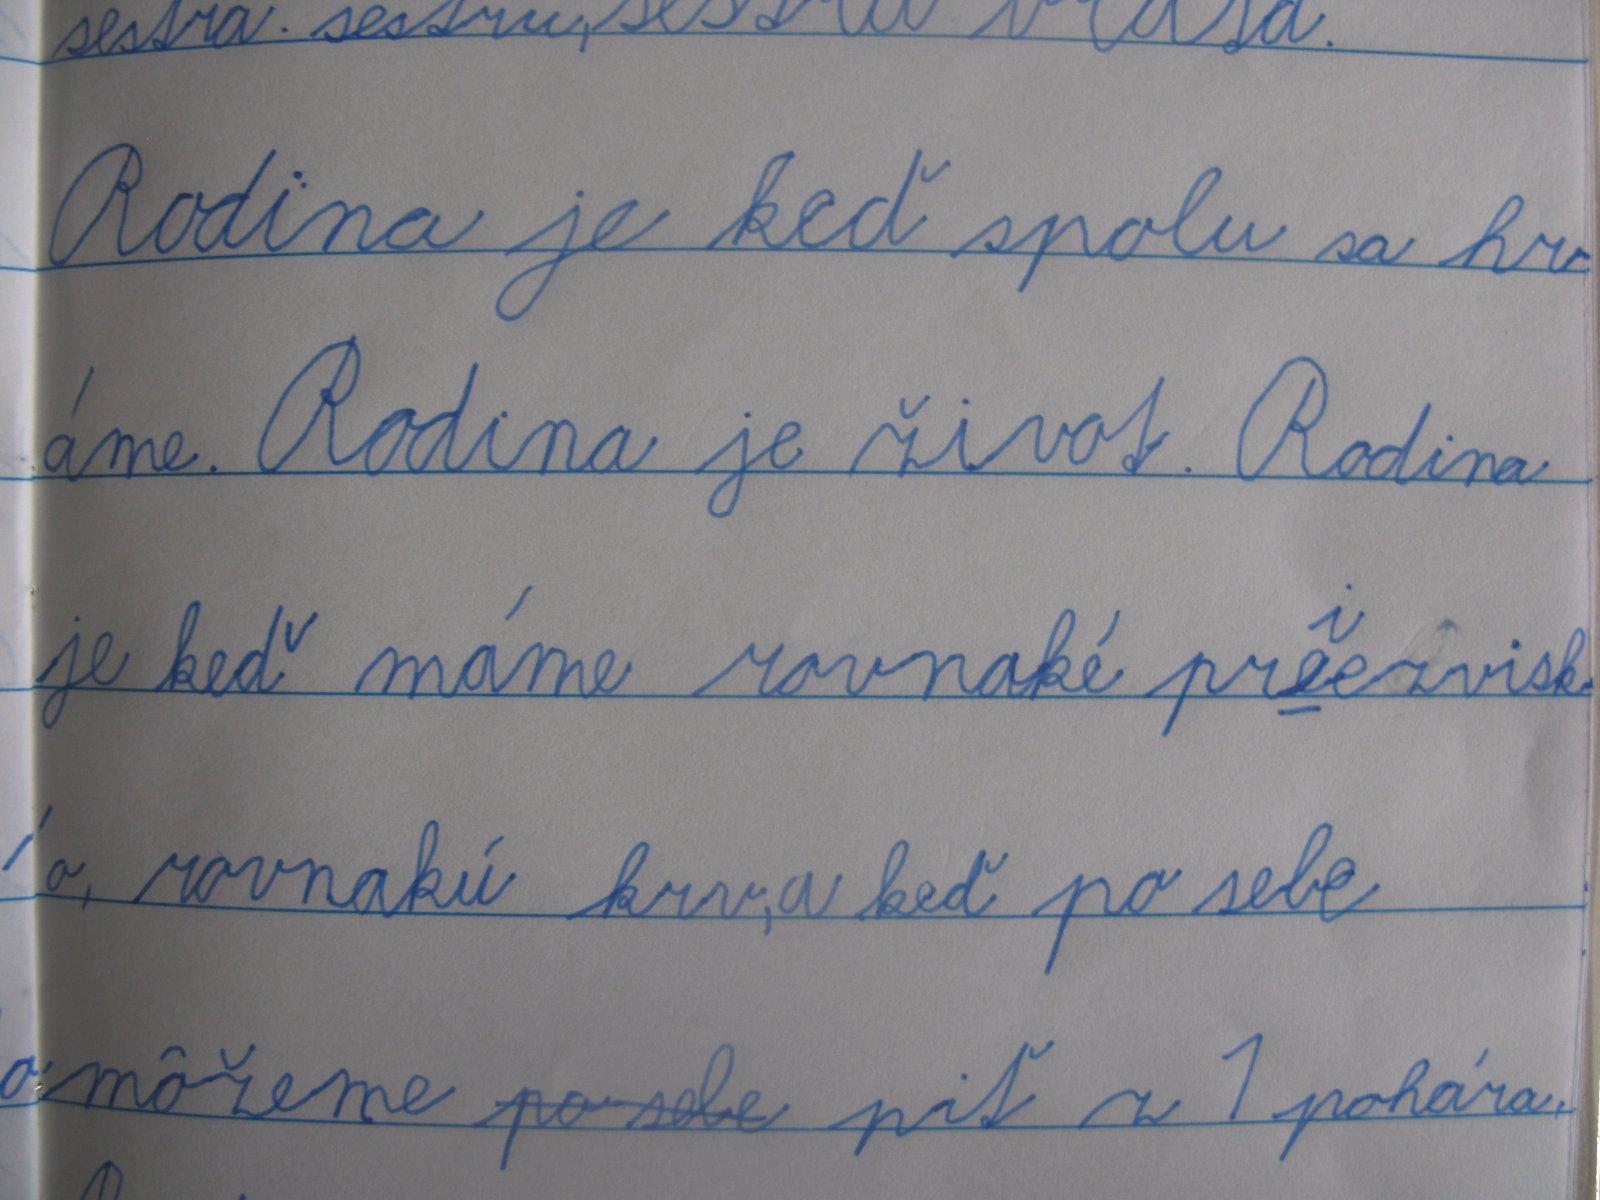 sestra. sestru, sestra brata.
Rodina je keď spolu sa hr-
áme. Rodina je život. Rodina
je keď máme rovnaké priezvisk-
o, rovnakú krv, a keď po sebe
môžeme po sebe piť z 1 pohára.